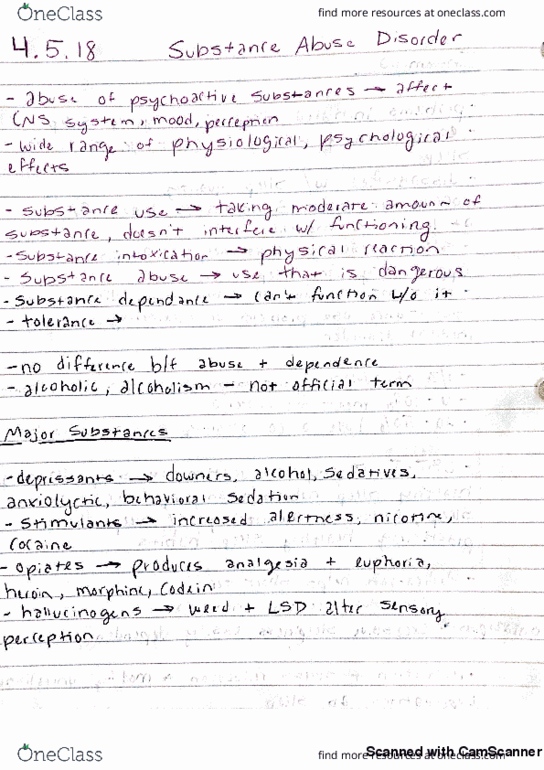 OneClass find more resources at oneclass.com
4.5.18 Substance Abuse Disorder
- abuse of psychoactive substances → affect
CNS system, mood, perception
- wide range of physiological, psychological
effects
- substance use → taking moderate amount of
substance, doesn't interfere w/ functioning
- substance intoxication → physical reaction
- substance abuse → use that is dangerous
- substance dependance → can't function w/o it
- tolerance →
- no difference b/t abuse + dependence
- alcoholic, alcoholism - not official term
Major Substances
- depressants → downers, alcohol, sedatives,
anxiolyctic, behavioral sedation
- stimulants → increased alertness, nicotine,
cocaine
- opiates → produces analgesia + euphoria,
heroin, morphine, codein
- hallucinogens → weed + LSD alter sensory
perception
OneClass find more resources at oneclass.com
Scanned with CamScanner